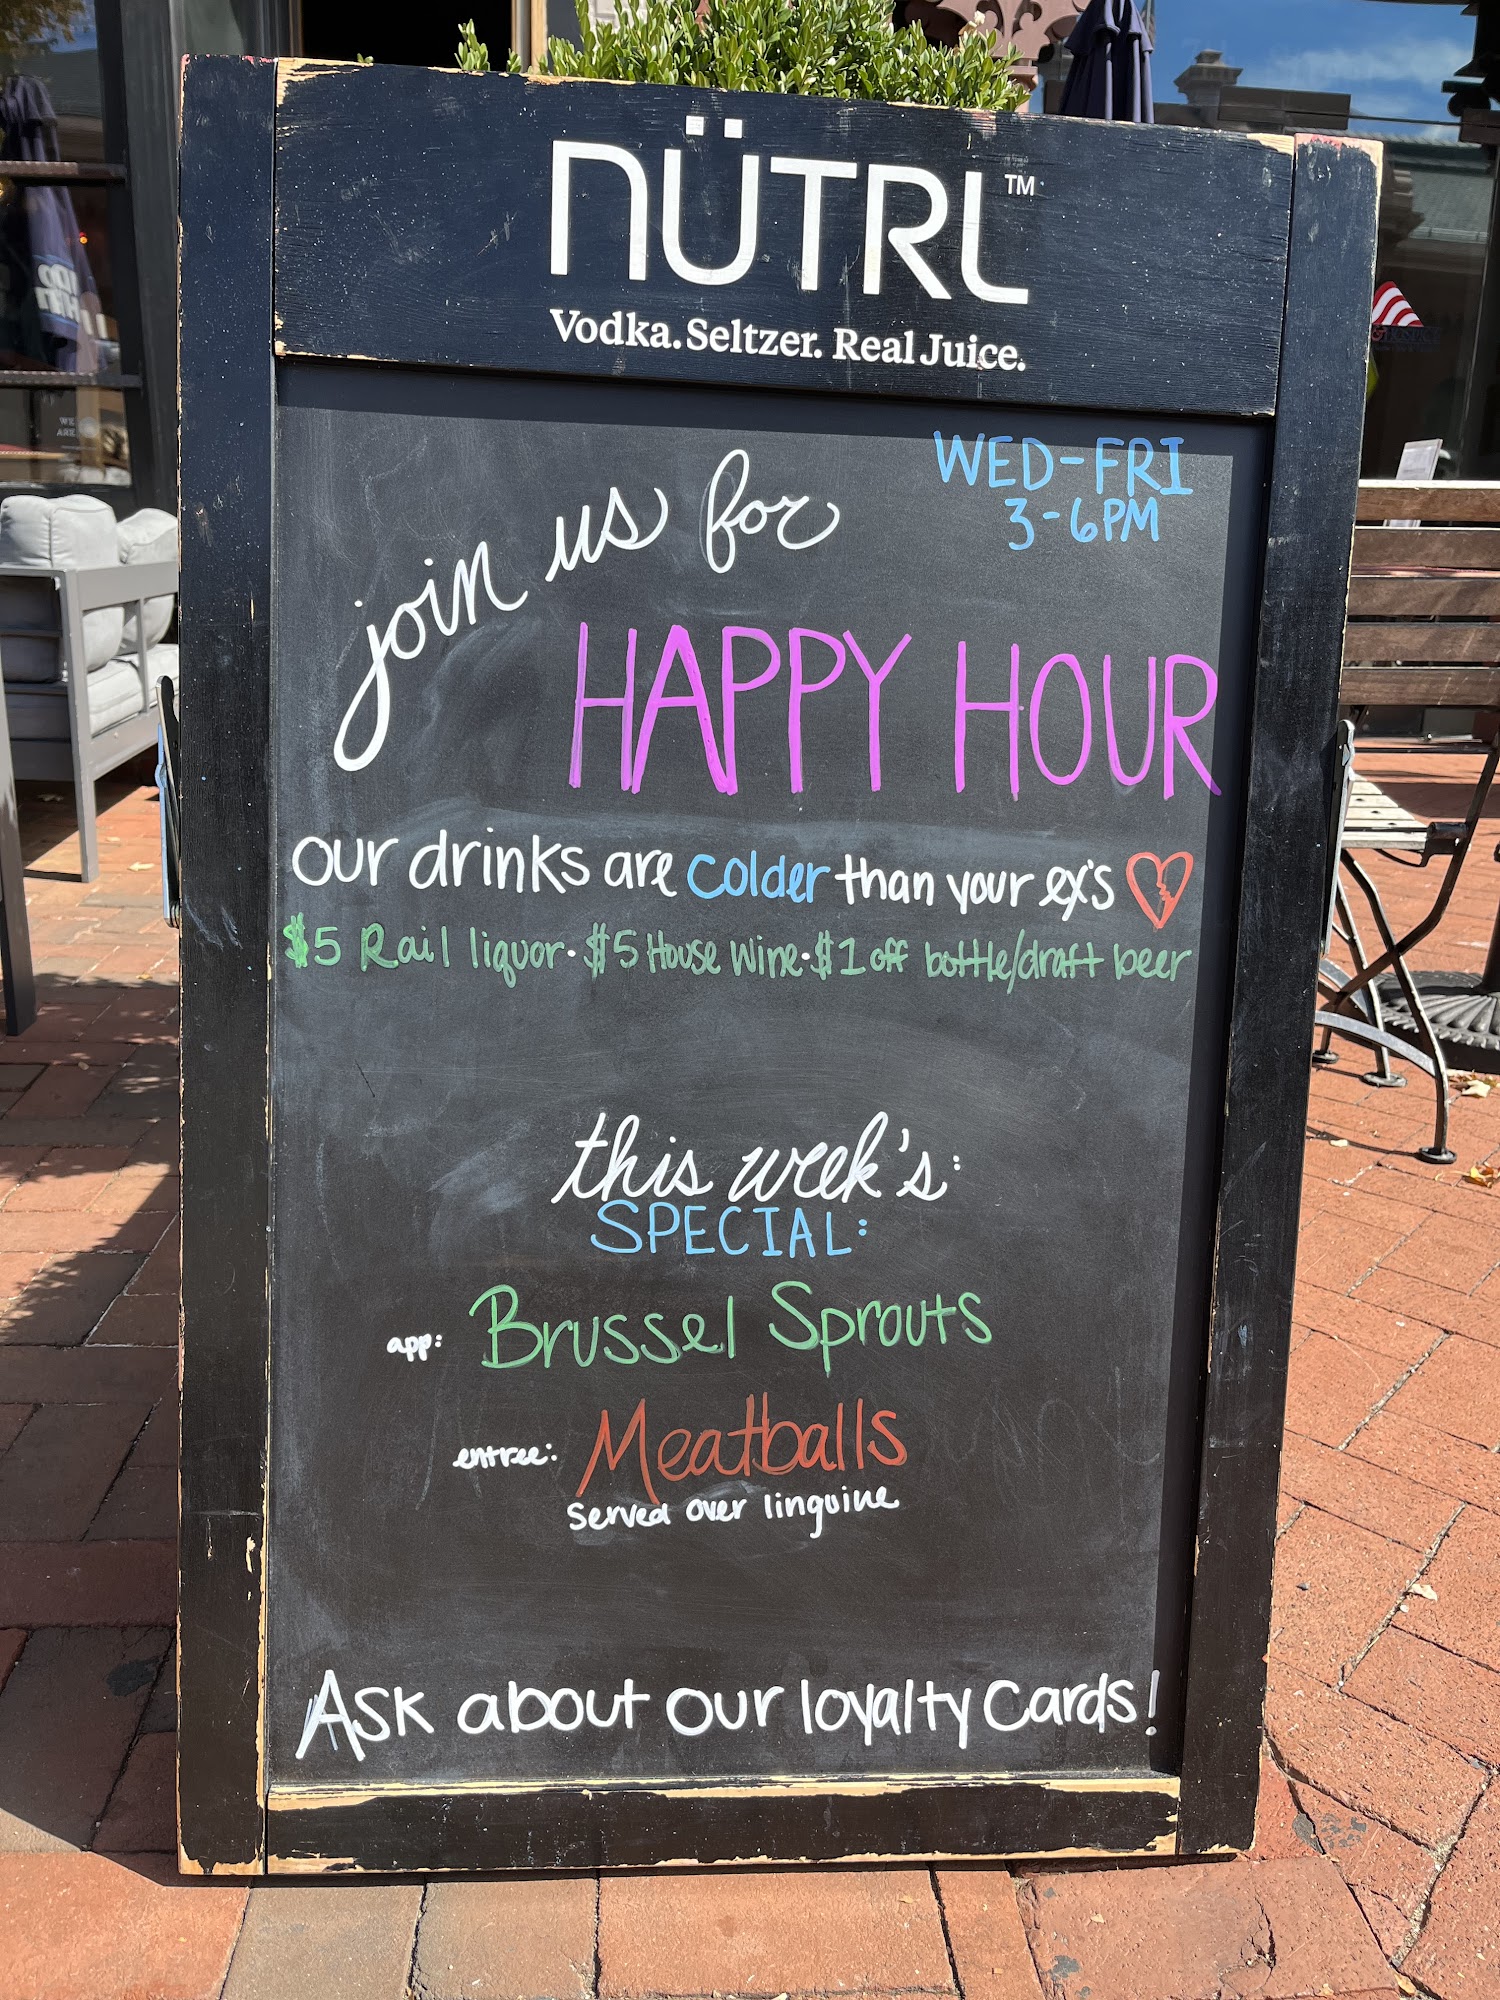 NÜTRL™
Vodka. Seltzer. Real Juice.
WED-FRI
3-6PM
join us for
HAPPY HOUR
our drinks are colder than your ex's
$5 Rail liquor · $5 House Wine · $1 off bottle/draft beer
this week's:
SPECIAL:
app: Brussel Sprouts
entree: Meatballs
served over linguine
Ask about our loyalty Cards!
WE
ARE